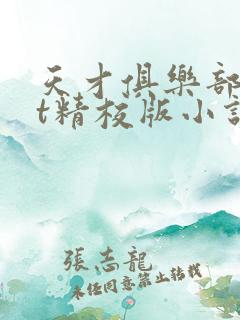 天才俱樂部
t精校版小說
張志龍
未經同意禁止轉載